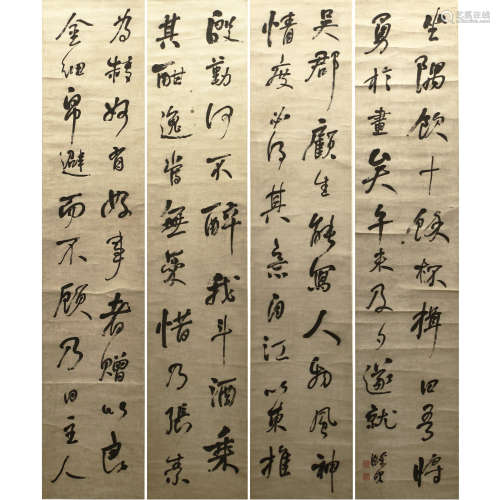 吳郡顧生能寫人物風神
情度必得其意自江以東推
為精好有好事者贈以良
金細帛避而不顧乃曰主人
殷勤何不醉我斗酒乘
其酣逸當無愛惜乃張素
坐隅飲十餘杯揖曰吾將
勇於畫矣午未及夕遂就